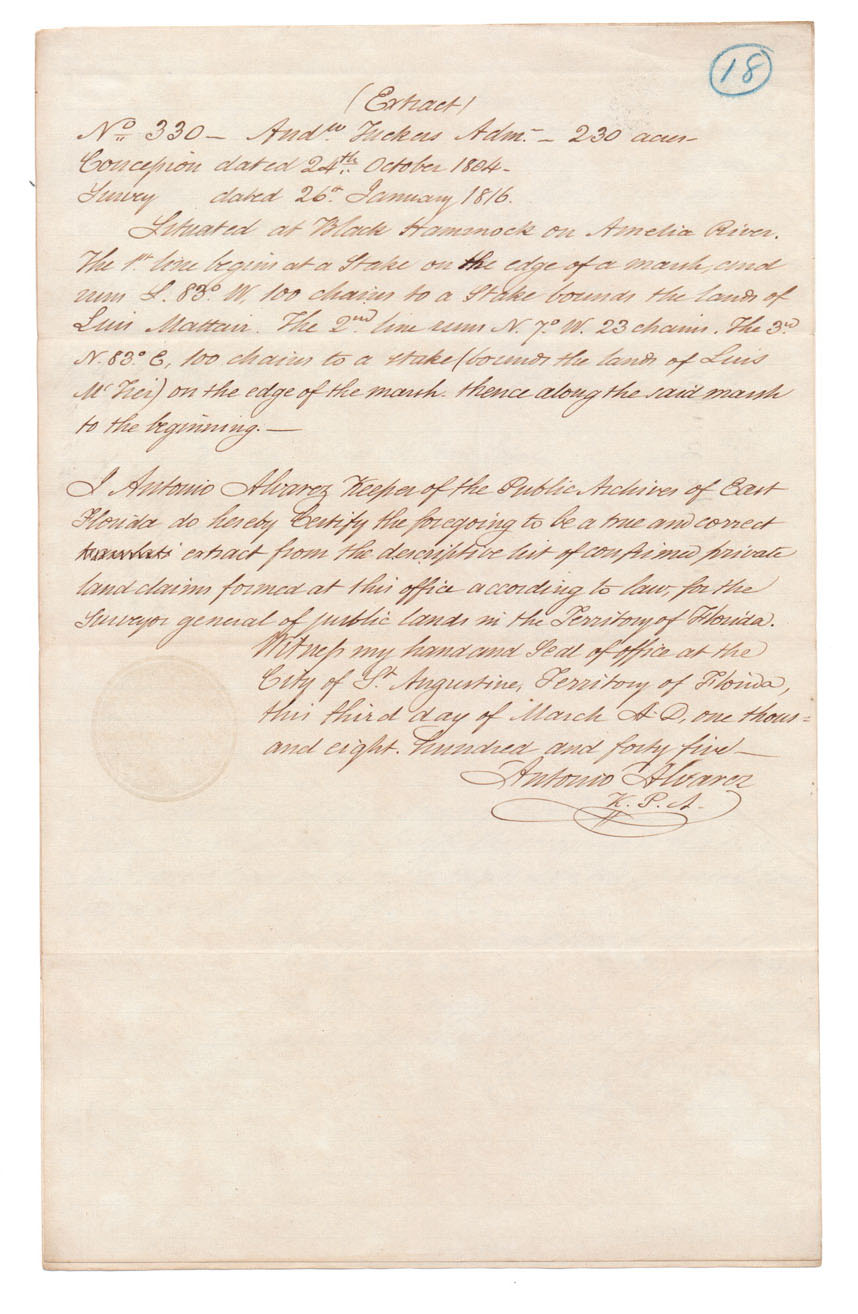 18
(Extract)
No 330 – Andw Tuckers Adm. – 230 acres
Concession dated 24th October 1804 –
Survey dated 26th January 1816.
Situated at Black Hammock on Amelia River.
The 1st line begins at a Stake on the edge of a marsh, and
runs S. 83° W, 100 chains to a Stake bounds the lands of
Luis Mattair. The 2nd line runs N. 7° W. 23 chains. The 3rd
N. 83° E, 100 chains to a stake (bounds the lands of Luis
on the edge of the marsh. thence along the said marsh
to the beginning. —
I Antonio Alvarez Keeper of the Public Archives of East
Florida do hereby Certify the foregoing to be a true and correct
extract from the descriptive list of confirmed private
land claims formed at this office according to law, for the
Surveyor general of public lands in the Territory of Florida.
Witness my hand and Seal of office at the
City of St Augustine, Territory of Florida,
this third day of March A.D. one thous=
and eight. hundred and forty five —
Antonio Alvarez
K. P. A.